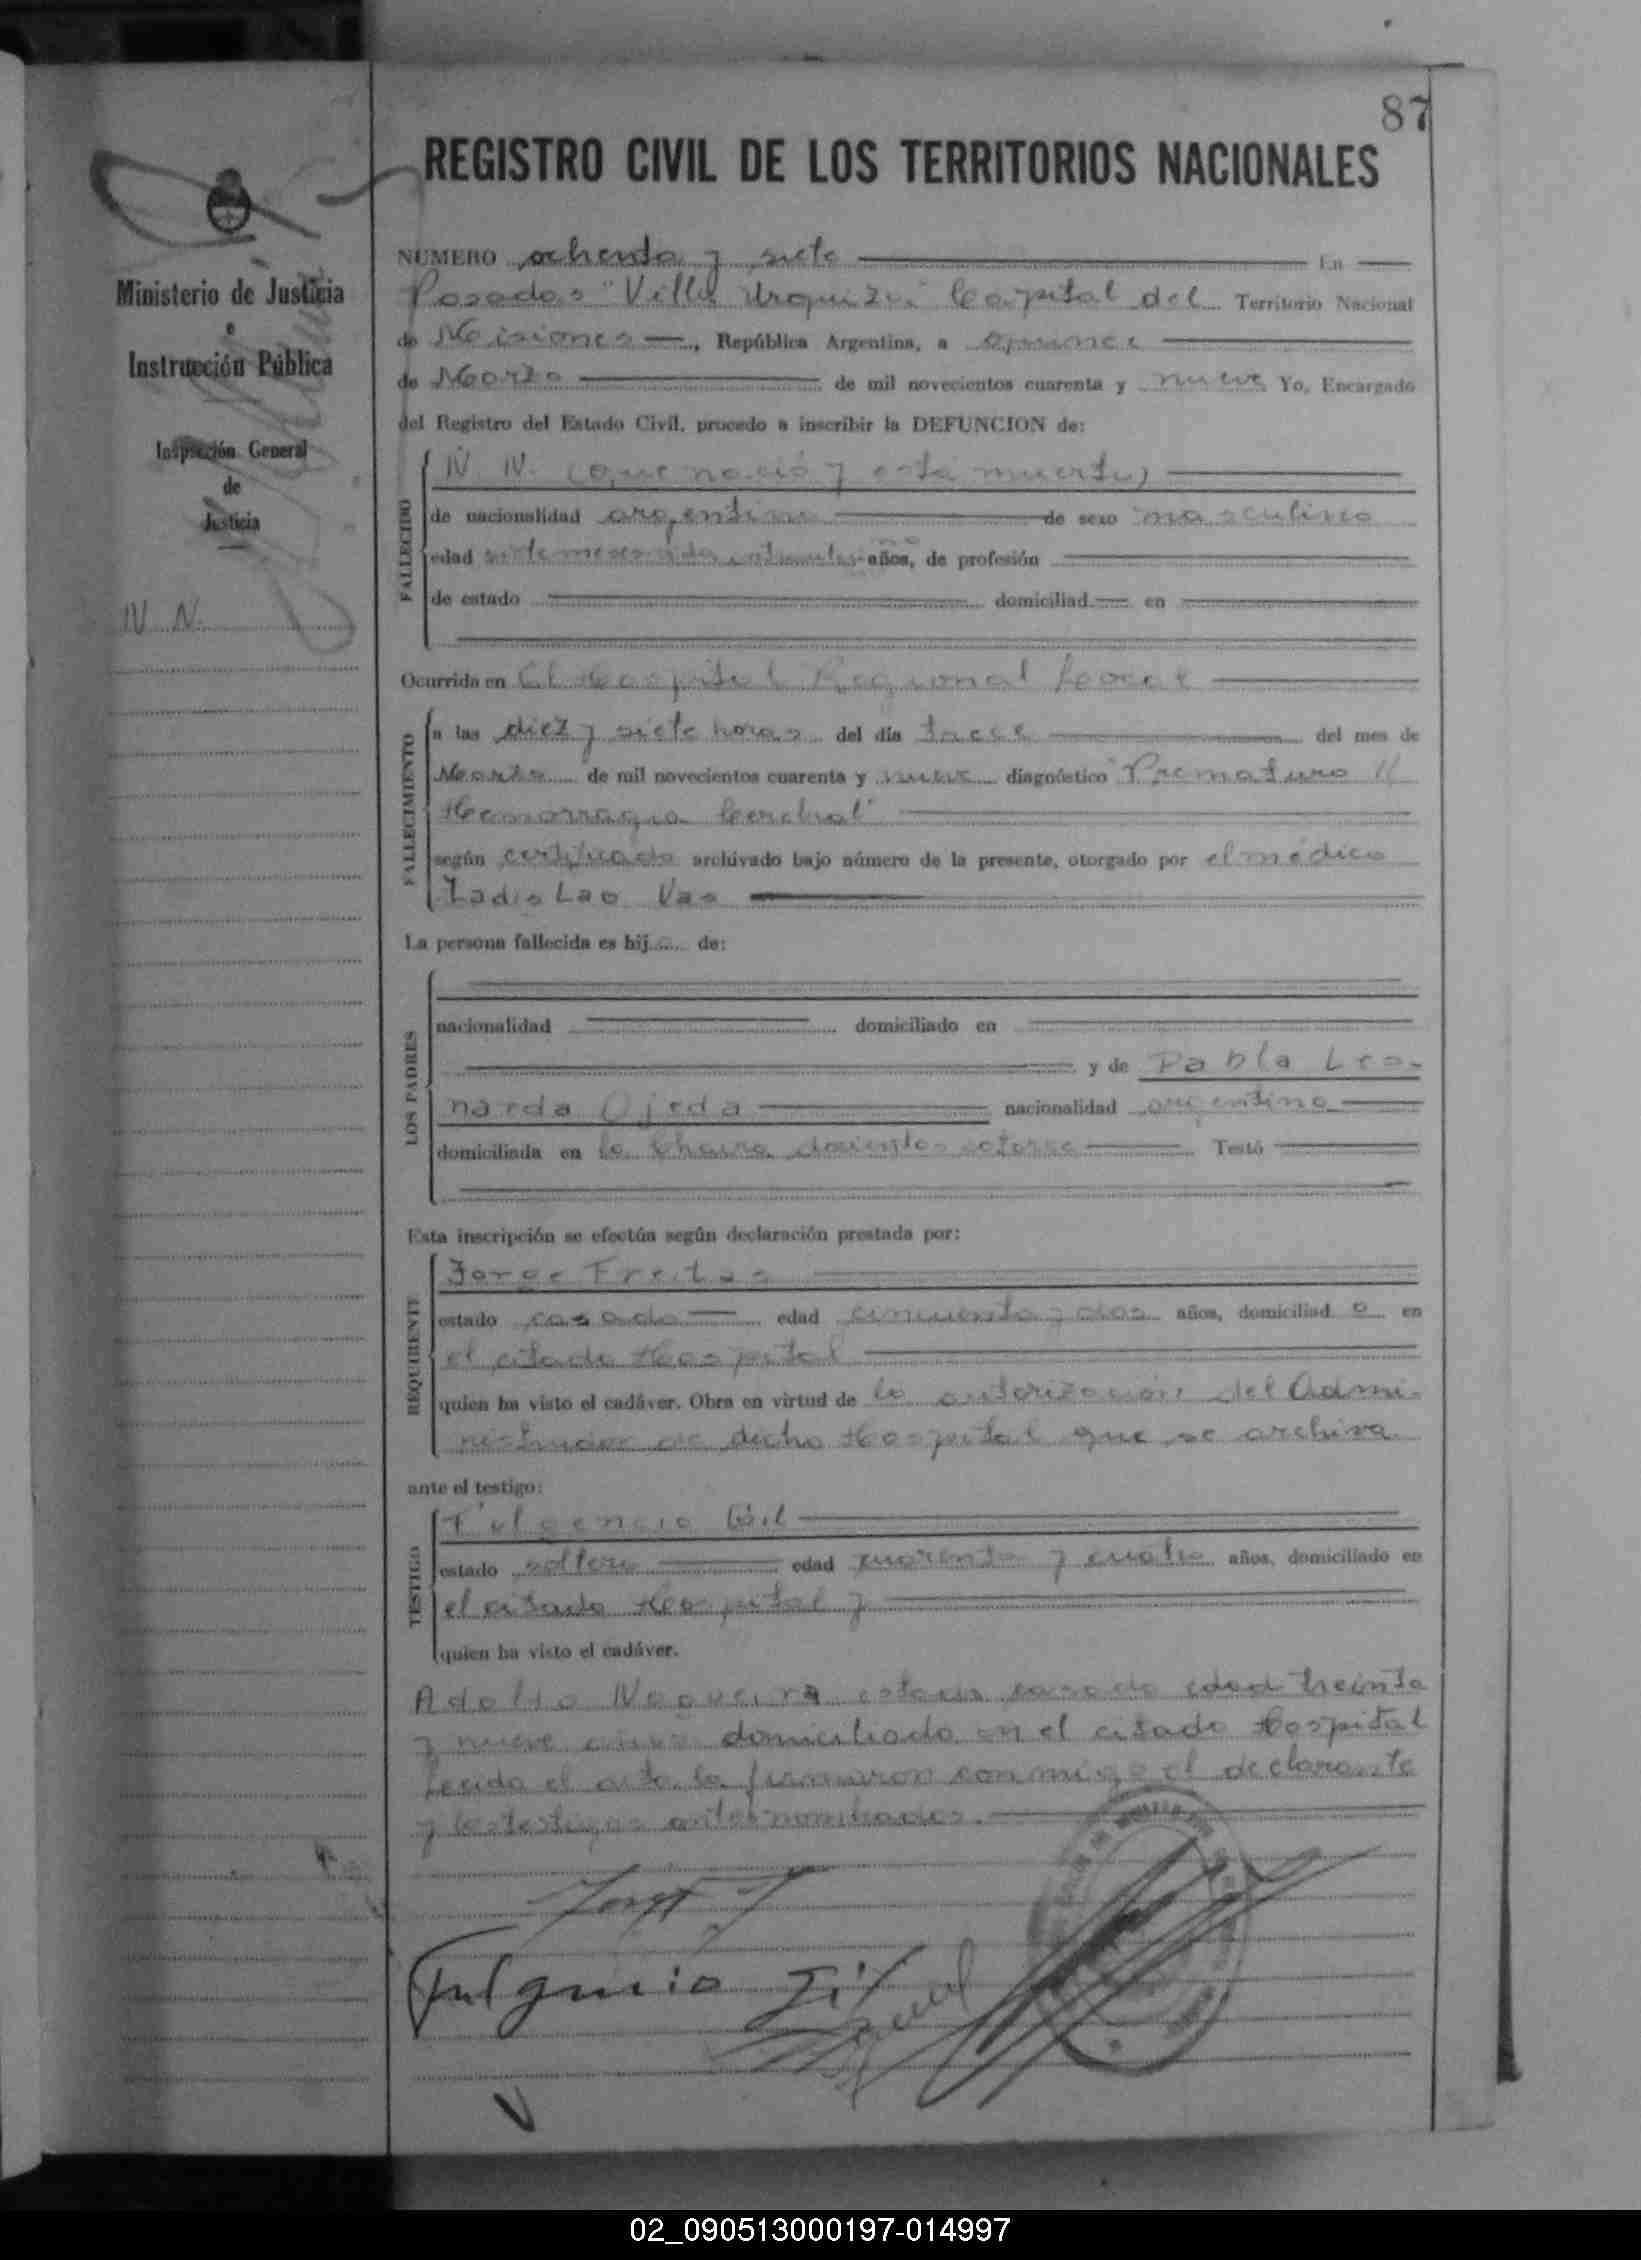 87
REGISTRO CIVIL DE LOS TERRITORIOS NACIONALES
Ministerio de Justicia
e
Instrucción Pública
Inspección General
de
Justicia
N. N.
NUMERO ochenta y siete En
Posadas "Villa Urquiza" Capital del Territorio Nacional
de Misiones, República Argentina, a quince
de Marzo de mil novecientos cuarenta y nueve Yo, Encargado
del Registro del Estado Civil, procedo a inscribir la DEFUNCION de:
FALLECIDO
N. N. (que nació y esta muerto)
de nacionalidad argentino de sexo masculino
edad siete meses vida años, de profesión
de estado domiciliad en
Ocurrida en El Hospital Regional local
FALLECIMIENTO
a las diez y siete horas del día trece del mes de
Marzo de mil novecientos cuarenta y nueve diagnóstico "Prematuro
Hemorragia Cerebral"
según certificado archivado bajo número de la presente, otorgado por el médico
Ladislao Vas
La persona fallecida es hij de:
LOS PADRES
nacionalidad domiciliado en
y de Pabla Leo-
narda Ojeda nacionalidad argentina
domiciliada en la Chacra doscientos catorce Testó
Esta inscripción se efectúa según declaración prestada por:
REQUIRENTE
Jorge Freitas
estado casado edad cincuenta y dos años, domiciliad o en
el citado Hospital
quien ha visto el cadáver. Obra en virtud de la autorización del Admi-
nistrador de dicho Hospital que se archiva
ante el testigo:
TESTIGO
Fulgencio Gil
estado soltero edad cuarenta y cuatro años, domiciliado en
el citado Hospital y
quien ha visto el cadáver.
Adolfo Nogueira estado casado edad treinta
y nueve años domiciliado en el citado Hospital
Leida el acta la firmaron conmigo el declarante
y los testigos antes nombrados.
Jorge F
Fulgencio Gil
02_090513000197-014997